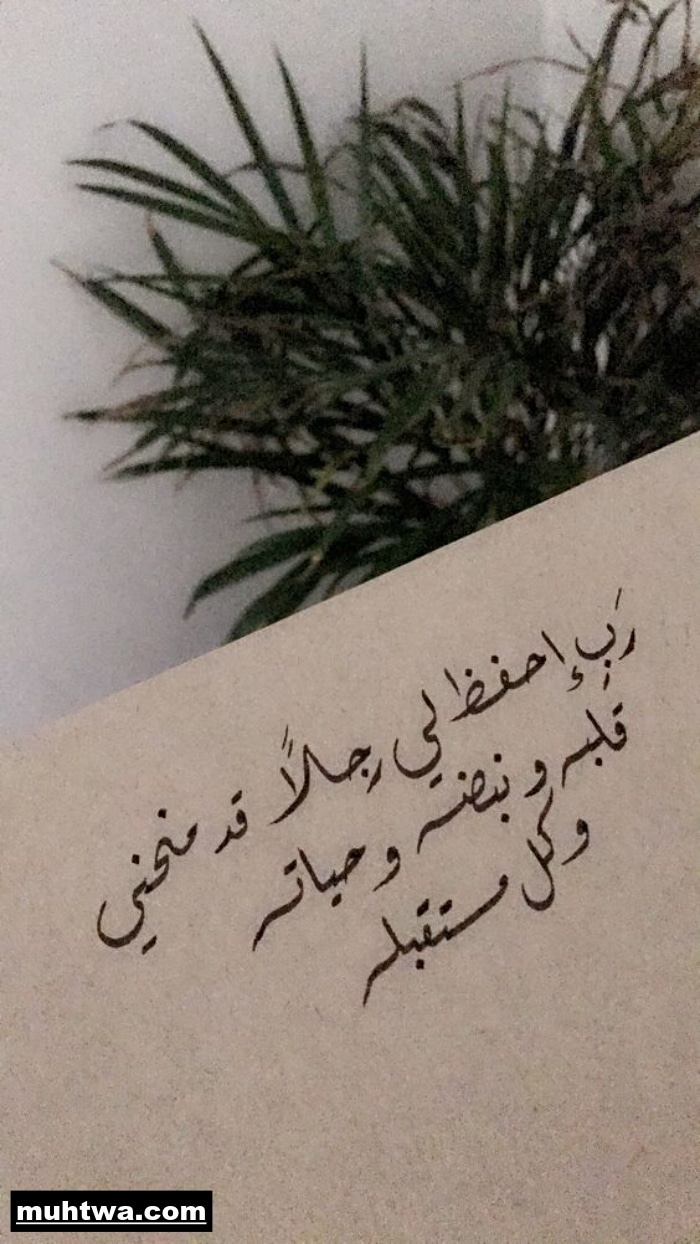 ربِ إحفظ لي رجالاً قد منحني
قلبه و نبضه و حياته
وكل مستقبله
muhtwa.com